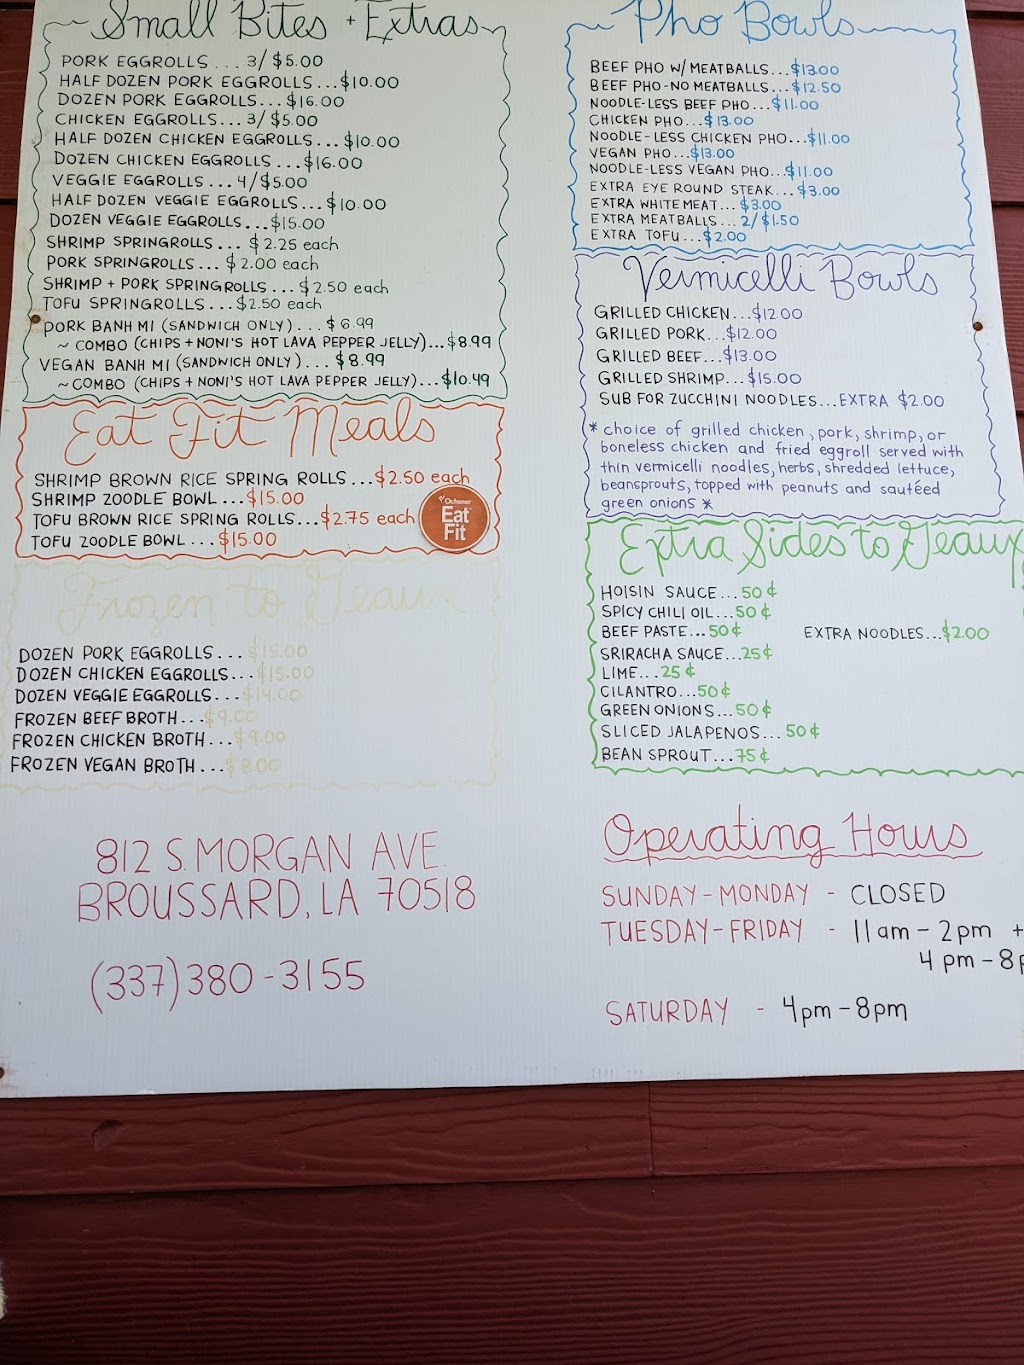 Small Bites + Extras
PORK EGGROLLS ... 3/$5.00
HALF DOZEN PORK EGGROLLS...$10.00
DOZEN PORK EGGROLLS...$16.00
CHICKEN EGGROLLS...3/$5.00
HALF DOZEN CHICKEN EGGROLLS...$10.00
DOZEN CHICKEN EGGROLLS ...$16.00
VEGGIE EGGROLLS ... 4/$5.00
HALF DOZEN VEGGIE EGGROLLS...$10.00
DOZEN VEGGIE EGGROLLS...$15.00
SHRIMP SPRINGROLLS ... $2.25 each
PORK SPRINGROLLS... $2.00 each
SHRIMP + PORK SPRINGROLLS ... $2.50 each
TOFU SPRINGROLLS...$2.50 each
PORK BANH MI (SANDWICH ONLY)... $6.99
~ COMBO (CHIPS + NONI'S HOT LAVA PEPPER JELLY)...$8.99
VEGAN BANH MI (SANDWICH ONLY) ... $8.99
~ COMBO (CHIPS + NONI'S HOT LAVA PEPPER JELLY)...$10.49
Eat Fit Meals
SHRIMP BROWN RICE SPRING ROLLS...$2.50 each
SHRIMP ZOODLE BOWL...$15.00
TOFU BROWN RICE SPRING ROLLS...$2.75 each
TOFU ZOODLE BOWL...$15.00
Ochsner
Eat
Fit
Frozen to Geaux
DOZEN PORK EGGROLLS...$15.00
DOZEN CHICKEN EGGROLLS...$15.00
DOZEN VEGGIE EGGROLLS...$14.00
FROZEN BEEF BROTH...$9.00
FROZEN CHICKEN BROTH...$9.00
FROZEN VEGAN BROTH...$8.00
812 S. MORGAN AVE.
BROUSSARD, LA 70518
(337)380-3155
Pho Bowls
BEEF PHO W/ MEATBALLS...$13.00
BEEF PHO-NO MEATBALLS...$12.50
NOODLE-LESS BEEF PHO...$11.00
CHICKEN PHO...$13.00
NOODLE-LESS CHICKEN PHO...$11.00
VEGAN PHO...$13.00
NOODLE-LESS VEGAN PHO...$11.00
EXTRA EYE ROUND STEAK...$3.00
EXTRA WHITE MEAT...$3.00
EXTRA MEATBALLS... 2/$1.50
EXTRA TOFU...$2.00
Vermicelli Bowls
GRILLED CHICKEN...$12.00
GRILLED PORK...$12.00
GRILLED BEEF...$13.00
GRILLED SHRIMP...$15.00
SUB FOR ZUCCHINI NOODLES...EXTRA $2.00
* choice of grilled chicken, pork, shrimp, or
boneless chicken and fried eggroll served with
thin vermicelli noodles, herbs, shredded lettuce,
beansprouts, topped with peanuts and sautéed
green onions *
Extra Sides to Geaux
HOISIN SAUCE...50¢
SPICY CHILI OIL...50¢
BEEF PASTE...50¢
EXTRA NOODLES...$2.00
SRIRACHA SAUCE...25¢
LIME...25¢
CILANTRO...50¢
GREEN ONIONS...50¢
SLICED JALAPENOS...50¢
BEAN SPROUT...75¢
Operating Hours
SUNDAY-MONDAY - CLOSED
TUESDAY-FRIDAY - 11am-2pm +
4pm-8p
SATURDAY - 4pm-8pm